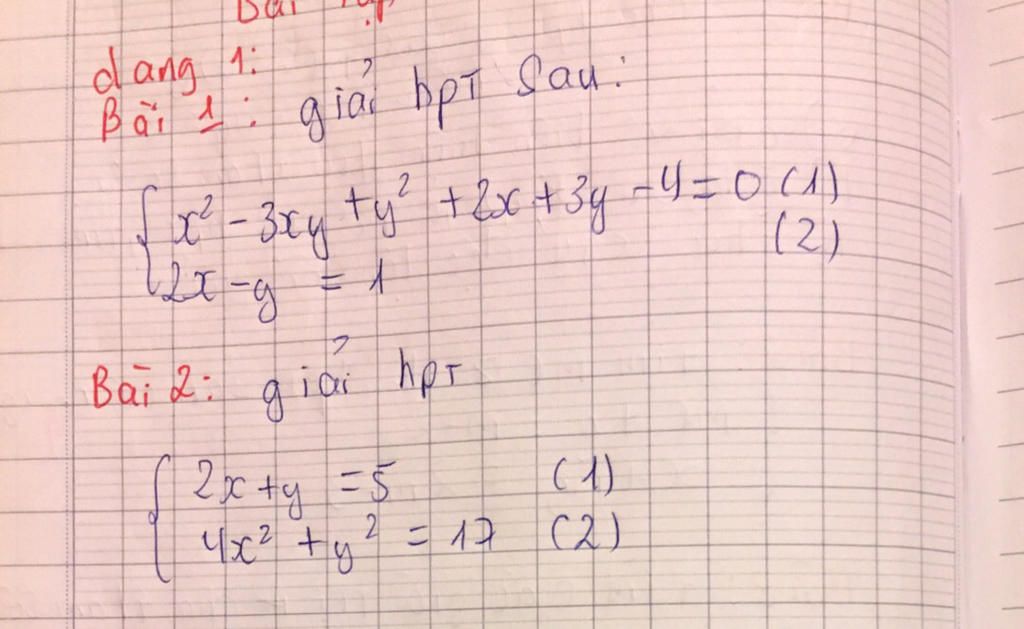 Bài tập
dạng 1:
Bài 1: giải hpT Sau:
x² - 3xy + y² + 2x + 3y - 4 = 0 (1)
2x - y = 1 (2)
Bài 2: giải hpT
2x + y = 5 (1)
4x² + y² = 17 (2)